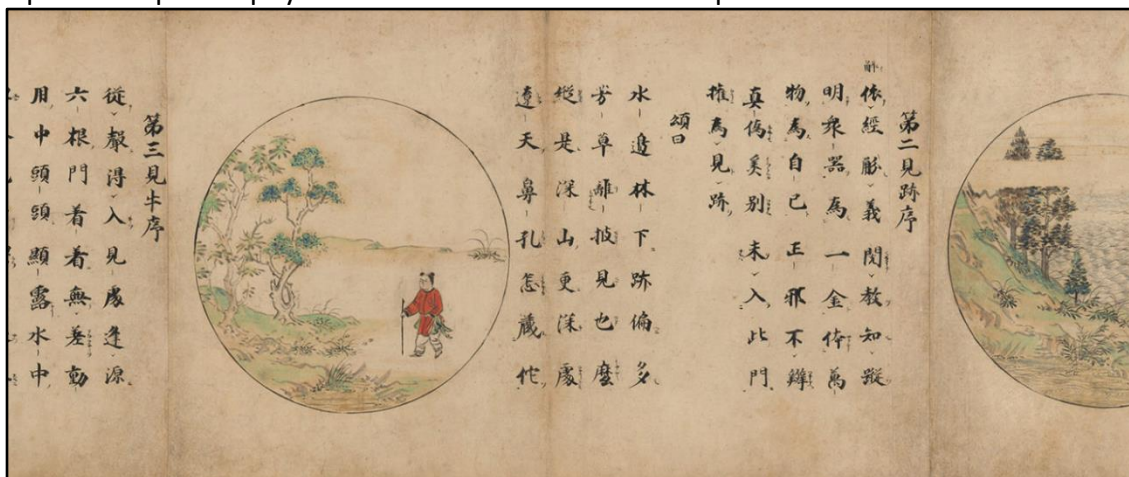 第二見跡序
依經解義閲教知蹤
明衆器為一金体萬
物為自己正邪不辨
真偽奚別未入此門
權為見跡
頌曰
水邊林下跡偏多
芳草離披見也麼
縱是深山更深處
遼天鼻孔怎藏佗
第三見牛序
從聲得入見處逢源
六根門着着無差動
用中頭頭顯露水中